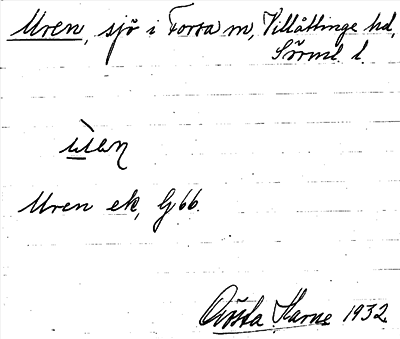 Uren, sjö i Forssa sn, Villåttinge hd,
Sörml. l.
Uren ek, Gj 66.
Gösta Karne 1932.